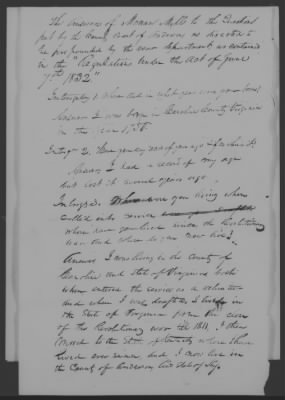 The answers of Mills to the Questions
put by the County Court of as directed to
be propounded by the war department as contained
in the "Regulations under the Act of June
7th 1832"
Interrogatory 1 Where and in what year were you born
Answer I was born in Caroline County Virginia
in the year
2. Have you any record of your age &
Answer I had a record of my age
but lost it several years ago
3. Where were you living when
called into service
where have you lived since the Revolutionary
war And where do you now live?
Answer I was living in the County of
Caroline and State of Virginia both
when entered the service as a volunteer
And when I was drafted & lived in
the State of Virginia from the close
of the Revolutionary war till 1811, I then
moved to the State of Kentucky where I have
lived ever since, and I now live in
the County of Anderson and State of Ky.